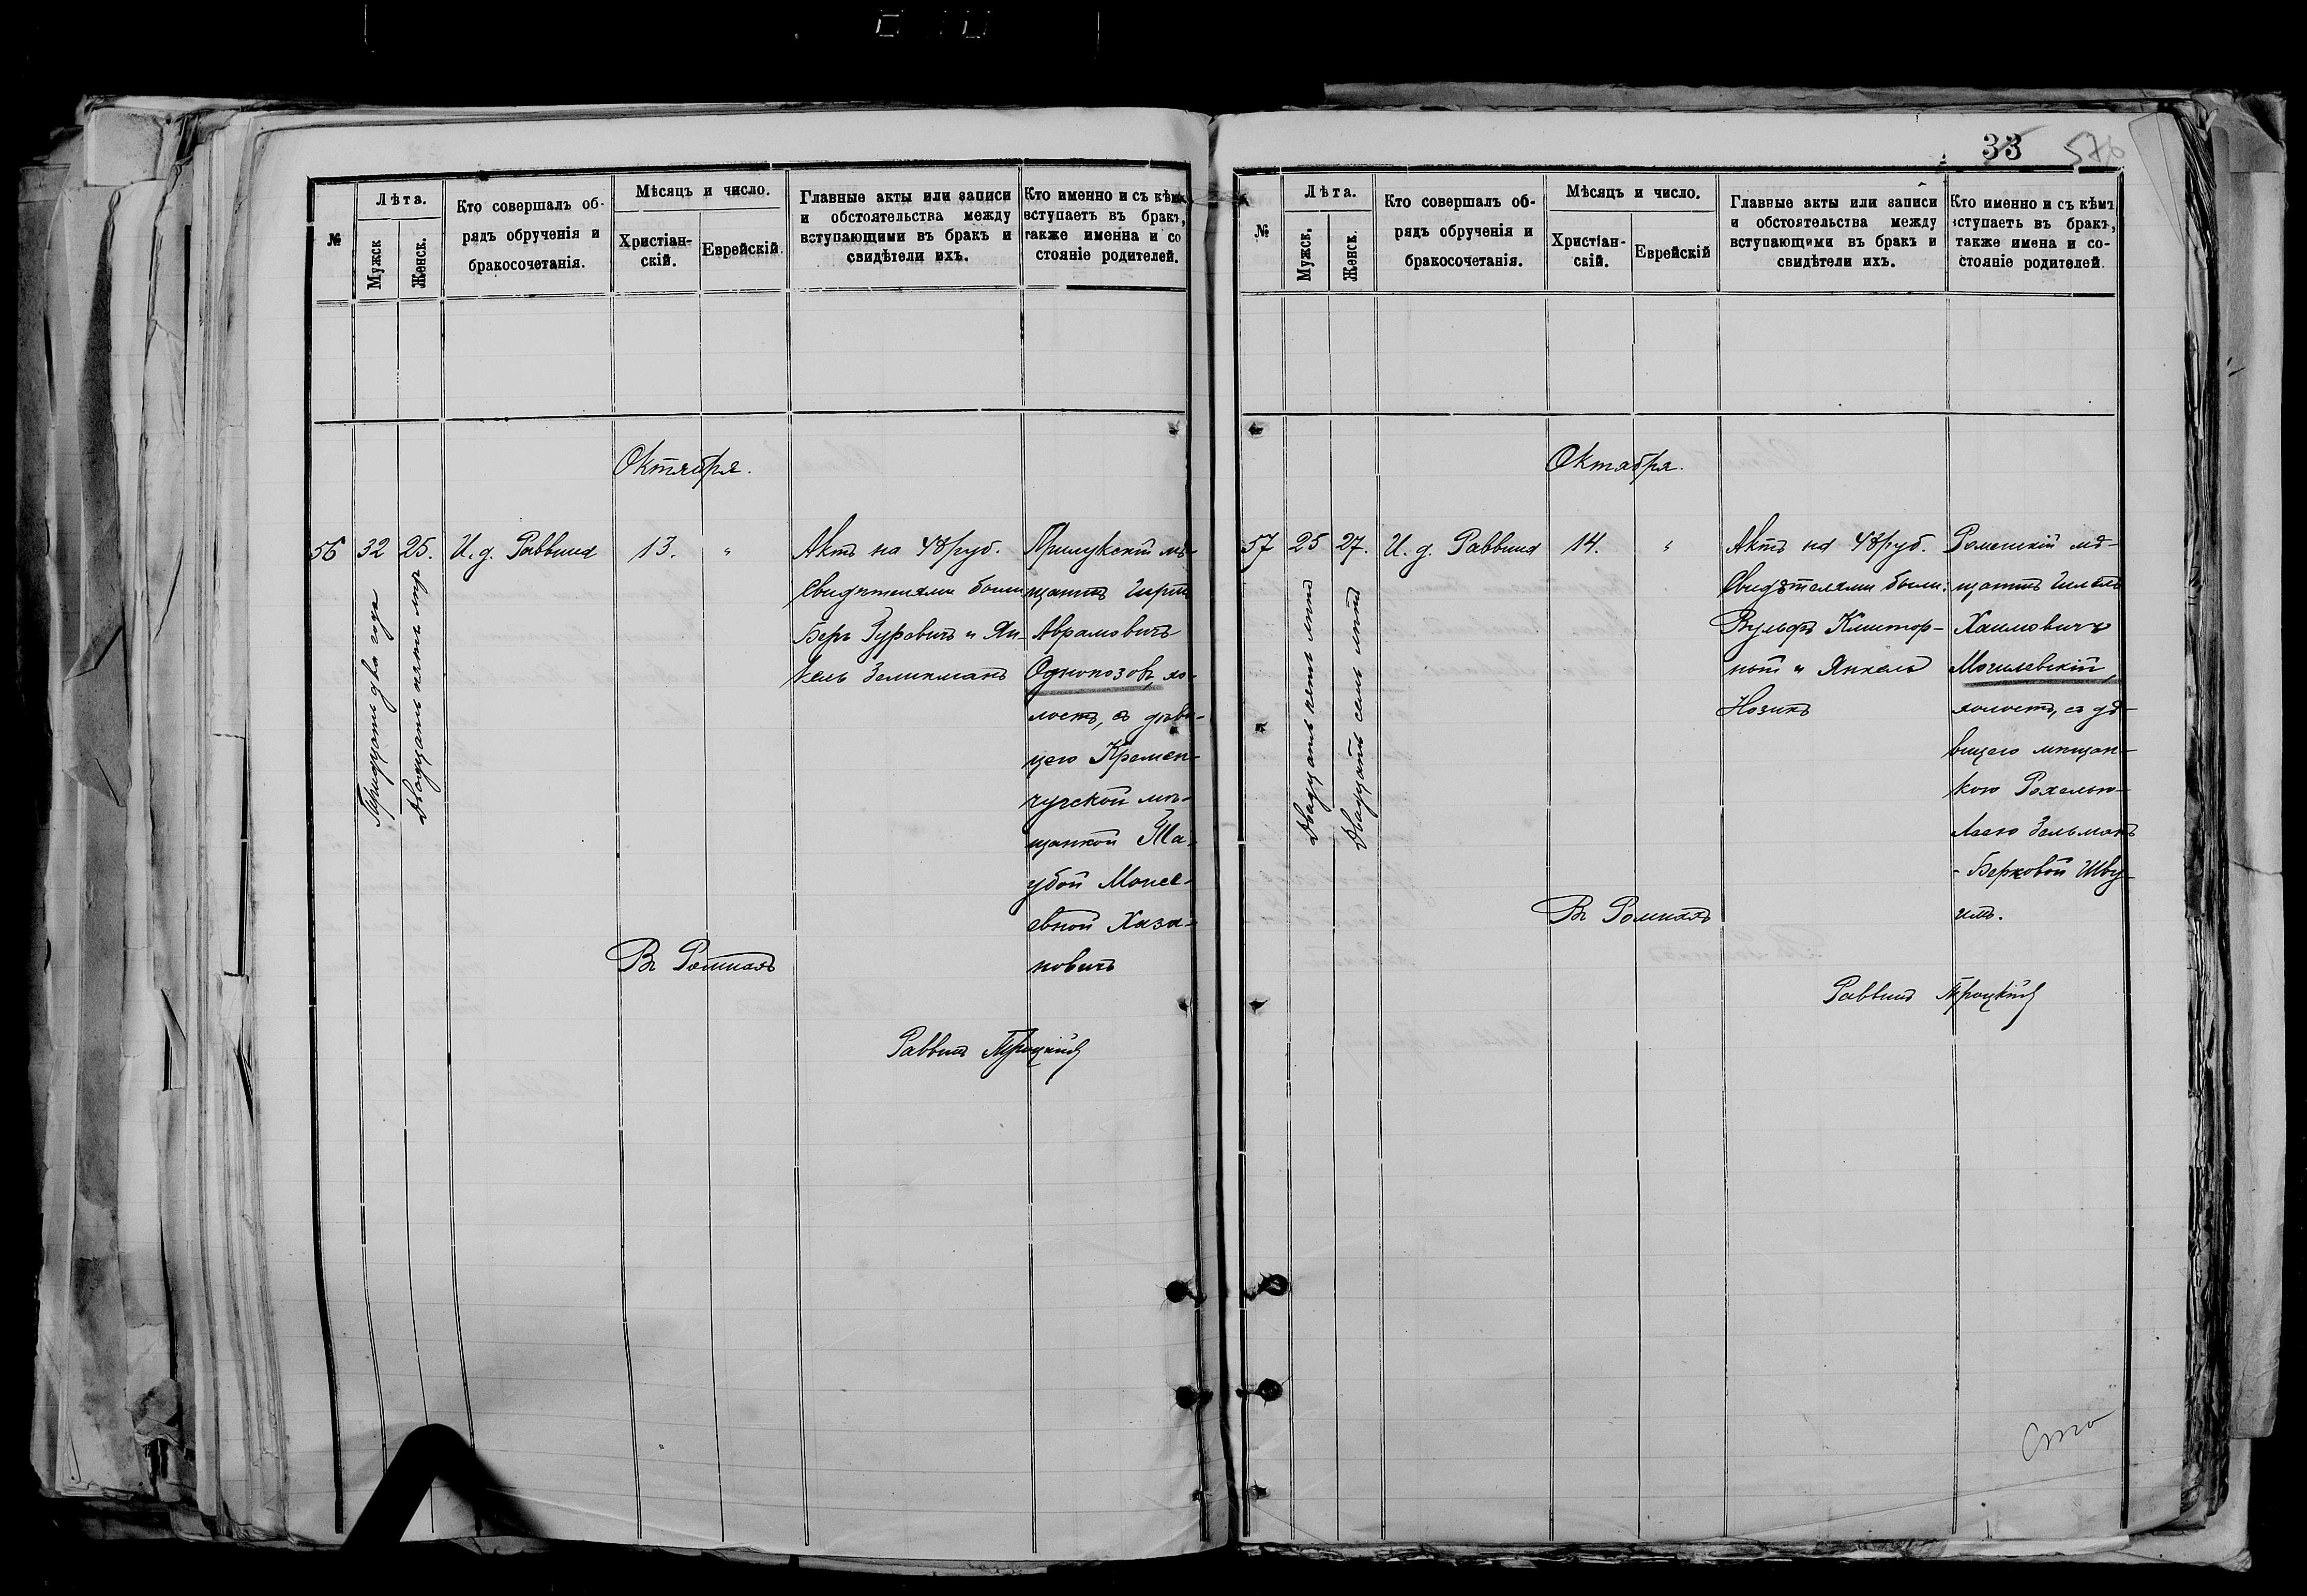 №
Лѣта.
Мужск
Женск.
Кто совершалъ об-
рядъ обрученія и
бракосочетанія.
Мѣсяцъ и число.
Христіан-
скій.
Еврейскій.
Главные акты или записи
и обстоятельства между
вступающими въ бракъ и
свидѣтели ихъ.
Кто именно и съ кѣмъ
вступаетъ въ бракъ,
также именна и со
стояніе родителей.
Октября.
56
32
Тридцать два года
25.
Двадцать пять лѣтъ
И. д. Раввина
13.
"
Актъ на 48 руб.
Свидѣтелями были
Беръ Гуревичъ и Ян-
кель Зеликманъ
Прилукскій мѣ-
щанинъ Гиршъ
Аврамовичъ
Однопозовъ, хо-
лостъ, съ дѣви-
цею Кремен-
чугской мѣ-
щанкой Та-
убой Моисе-
евной Хаза-
новичъ
Въ Ромнахъ
Раввинъ Троцкій
33
576
№
Лѣта.
Мужск.
Женск.
Кто совершалъ об-
рядъ обрученія и
бракосочетанія.
Мѣсяцъ и число.
Христіан-
скій.
Еврейскій
Главные акты или записи
и обстоятельства между
вступающими въ бракъ и
свидѣтели ихъ.
Кто именно и съ кѣмъ
вступаетъ въ бракъ,
также имена и со-
стояніе родителей.
Октября.
57
25
Двадцать пять лѣтъ
27.
Двадцать семь лѣтъ
И. д. Раввина
14.
"
Актъ на 48 руб.
Свидѣтелями были:
Вульфъ и Янкель
Нозикъ
Роменскій мѣ-
щанинъ Гилель
Хаимовичъ
Могилевскій,
холостъ, съ дѣ-
вицею мѣщан-
кою Рохелью-
Леею Зельманъ
-Берковой Шву-
имъ.
Въ Ромнахъ
Раввинъ Троцкій